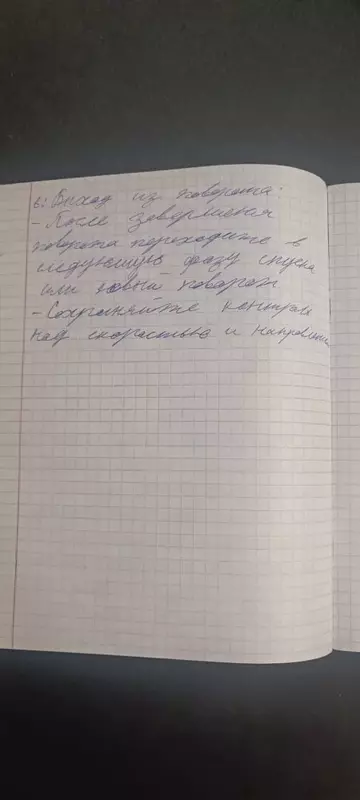 6: Выход из поворота:
- После завершения
поворота переходите в
следующую фазу спуска
или новый поворот
- Сохраняйте контроль
над скоростью и направлением